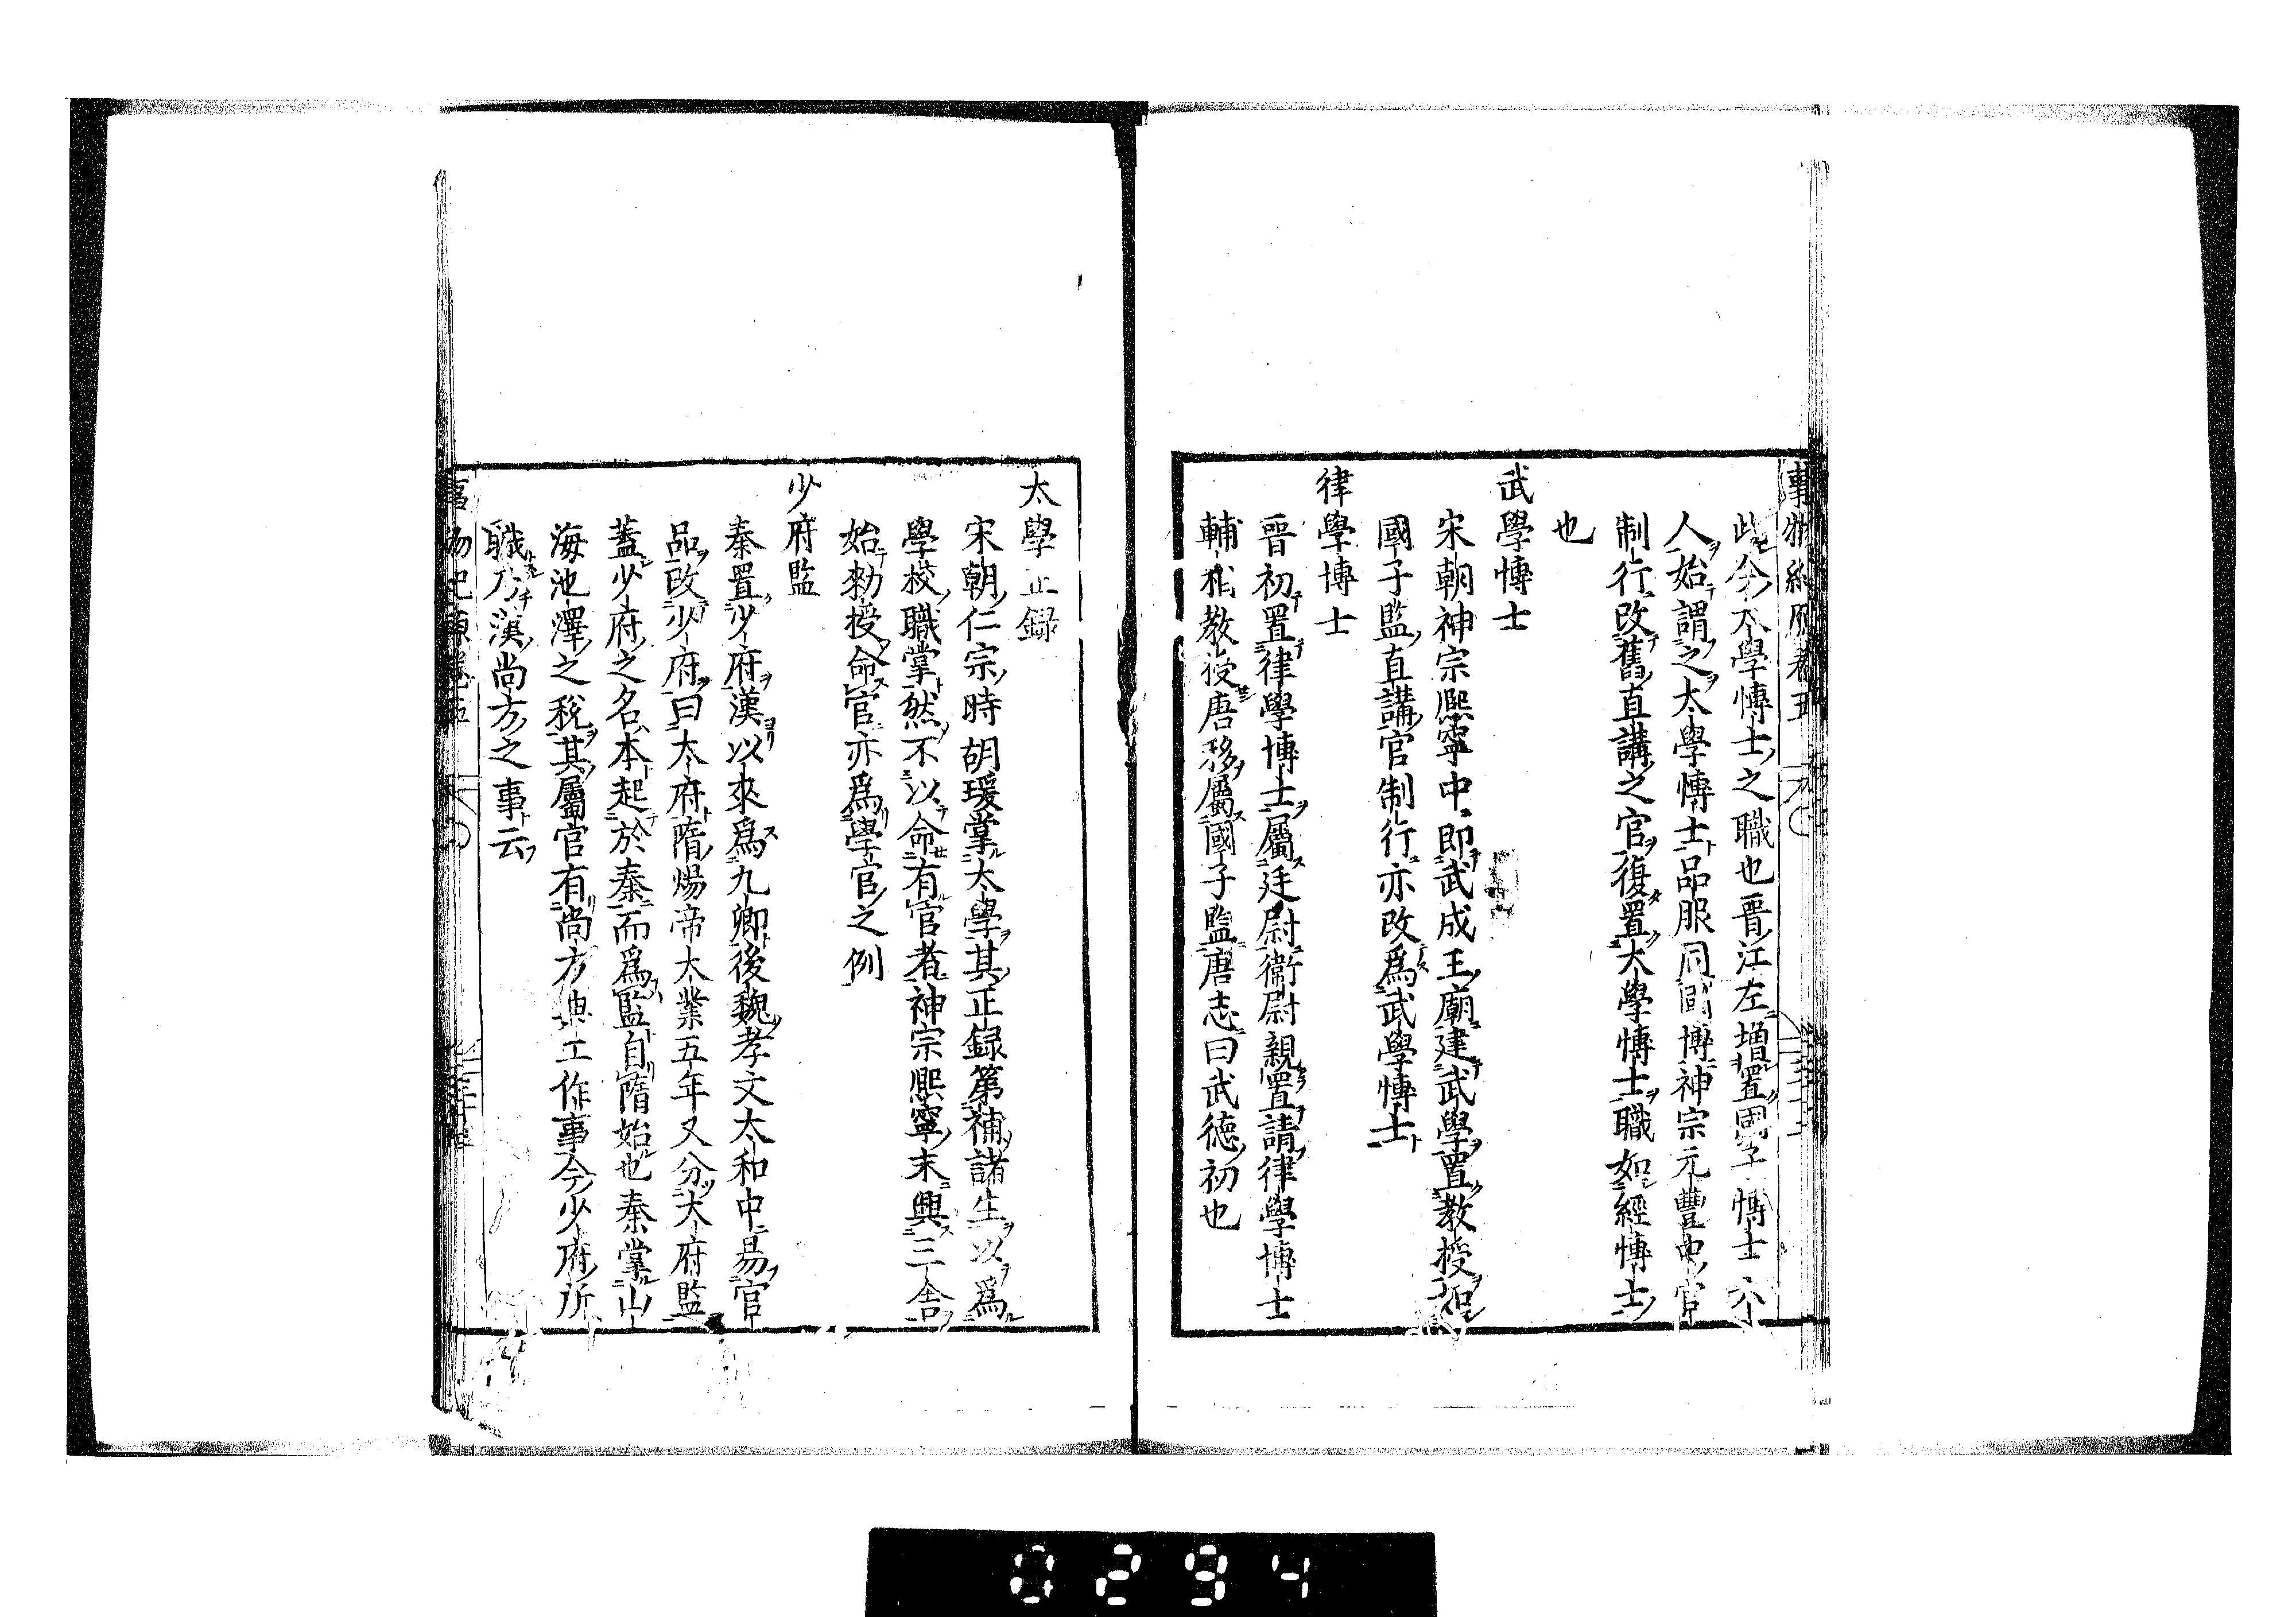 此今太學博士之職也晉江左增置國子博士六
人始謂之太學博士品服同國博神宗元豐中官
制行改舊直講之官復置太學博士職如經博士
也
武學博士
宋朝神宗熙寧中即武成王廟建武學置教授
國子監直講官制行亦改爲武學博士
律學博士
晉初置律學博士屬廷尉衞尉親置請律學博士
輔教授唐移屬國子監唐志曰武德初也
太學正録
宋朝仁宗時胡瑗掌太學其正録第補諸生以爲
學校職掌然不以命有官者神宗熙寧末興三舍
始勑授命官亦爲學官之例
少府監
秦置少府漢以來爲九卿後魏孝文太和中易官
品改少府曰太府隋煬帝大業五年又分太府監
蓋少府之名本起於秦而爲監自隋始也秦掌山
海池澤之稅其屬官有尚方典工作事今少府所
職乃漢尚方之事云
0294